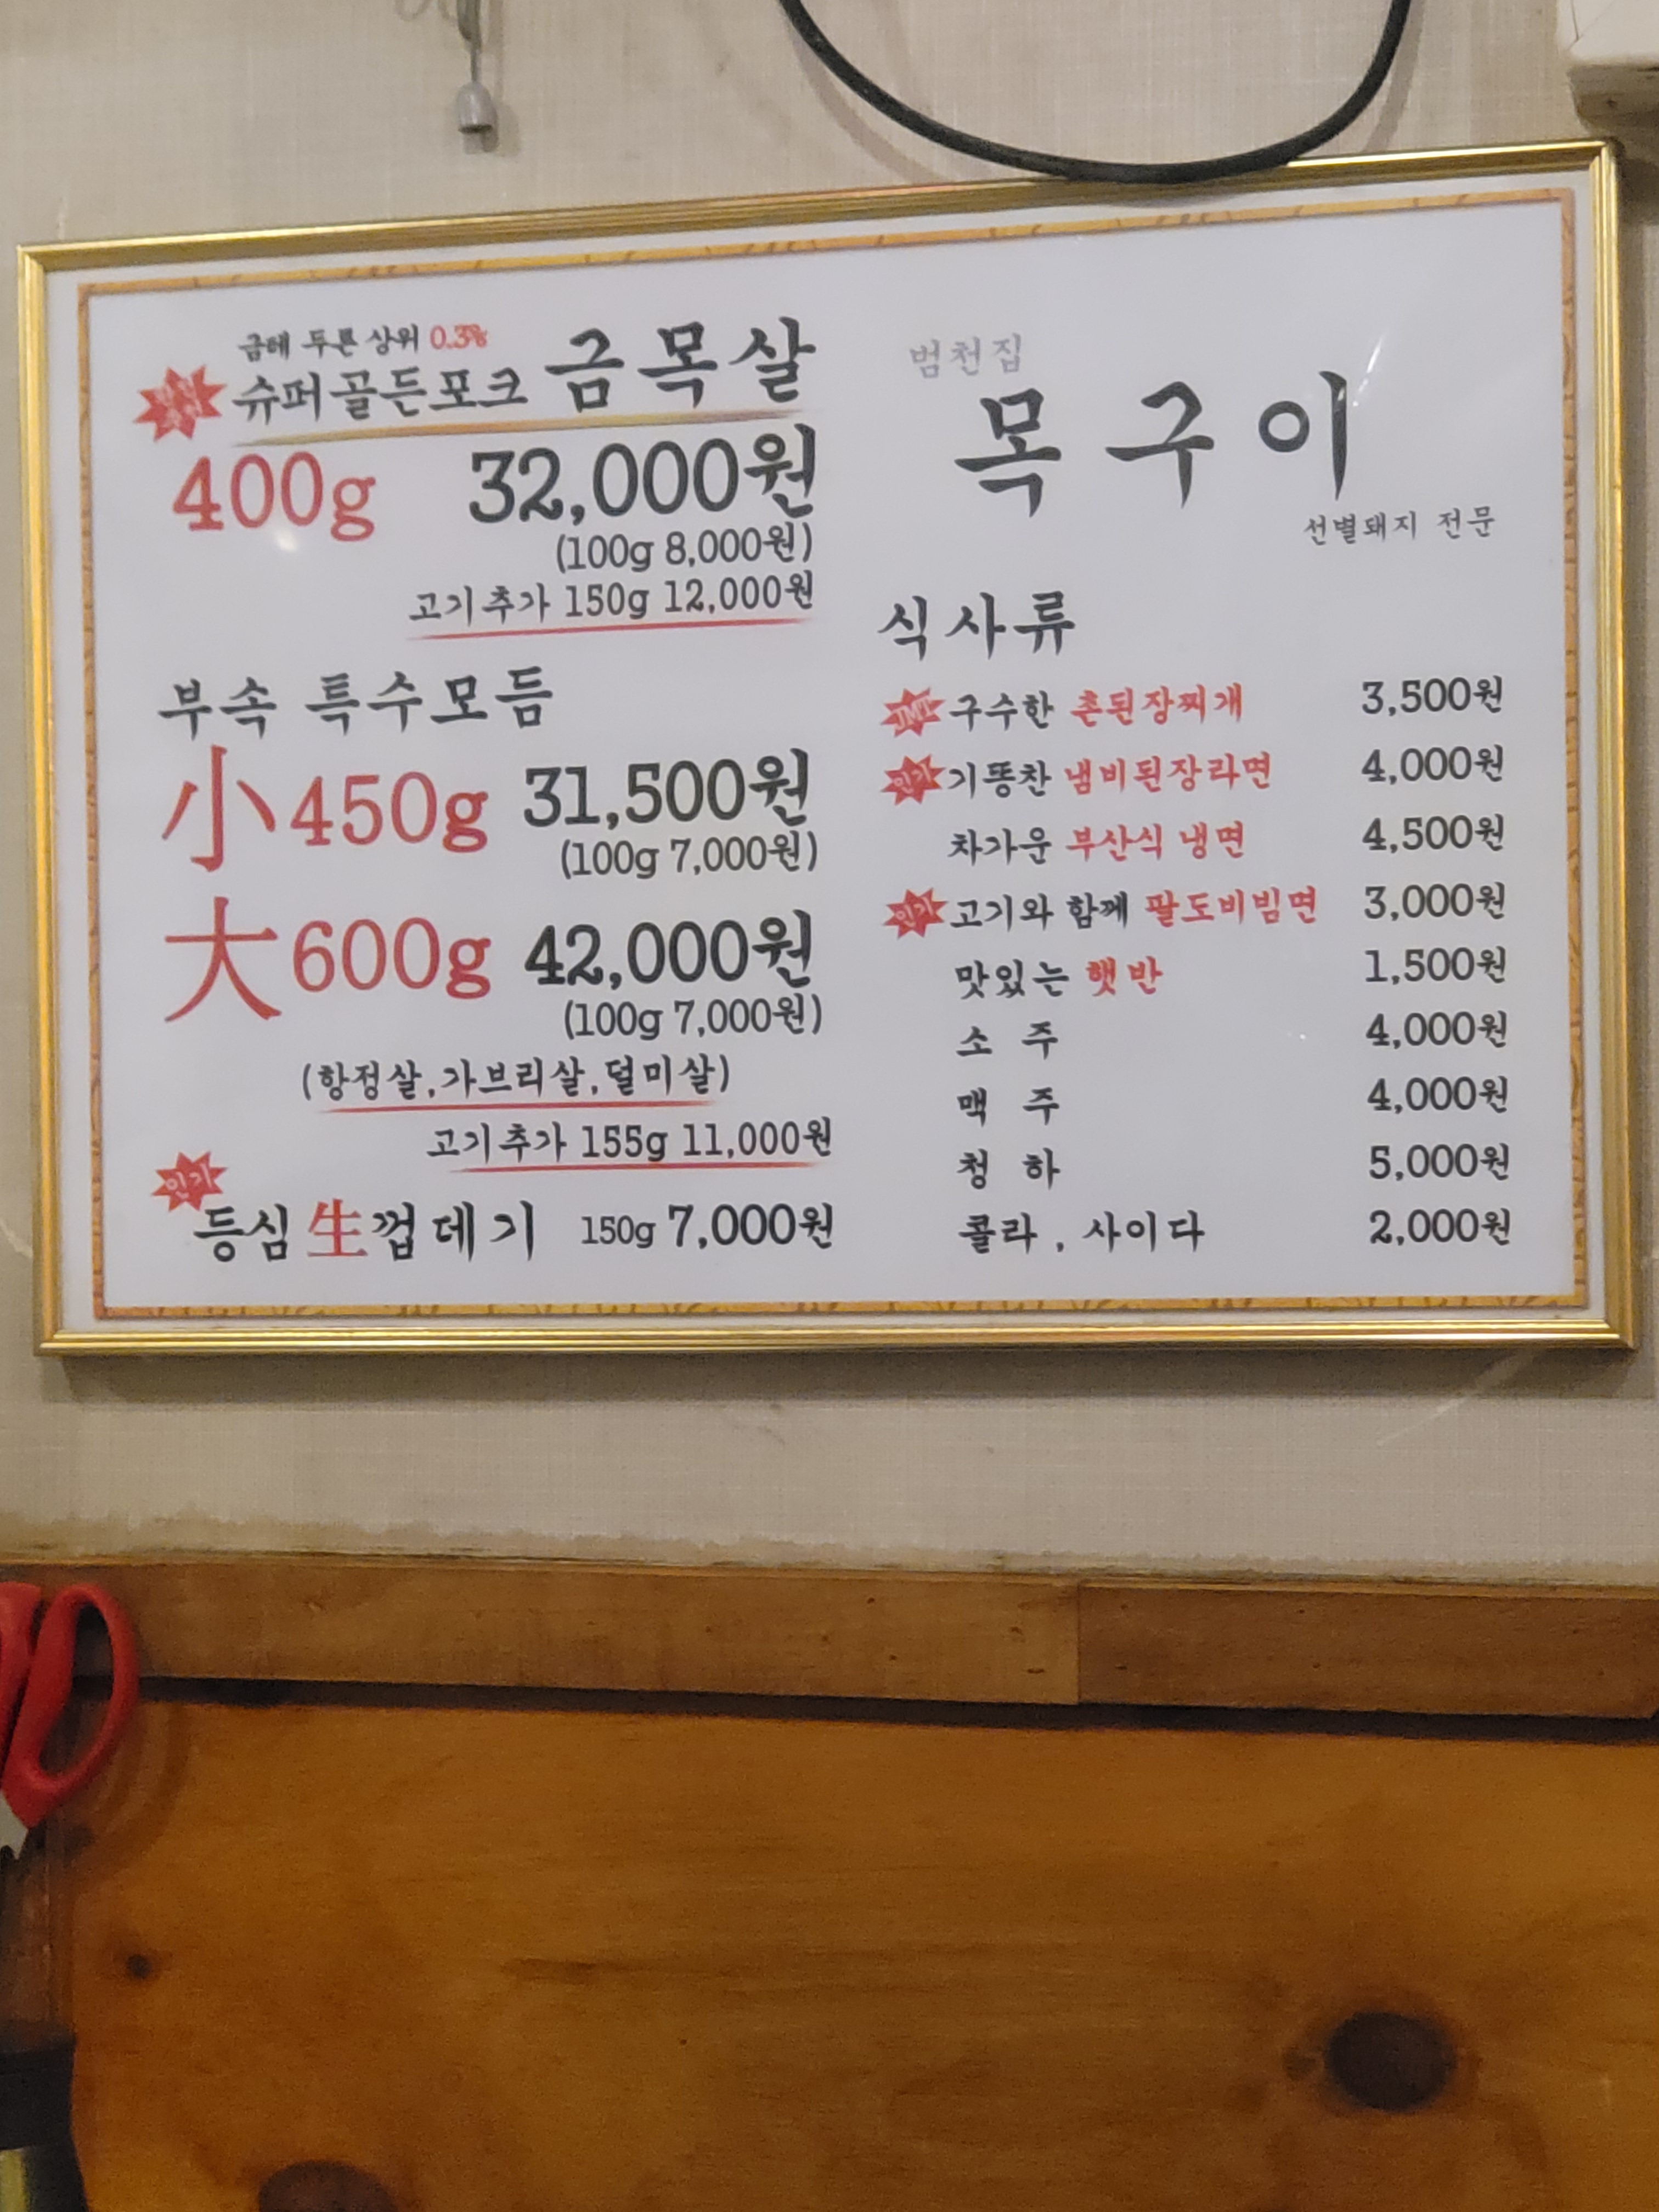 금테 두른 상위 0.3%
슈퍼골든포크 금목살
400g 32,000원
(100g 8,000원)
고기추가 150g 12,000원
부속 특수모듬
小 450g 31,500원
(100g 7,000원)
大 600g 42,000원
(100g 7,000원)
(항정살,가브리살,덜미살)
고기추가 155g 11,000원
인기
등심 生껍데기 150g 7,000원
범천집
목구이
선별돼지 전문
식사류
구수한 촌된장찌개 3,500원
인기 기똥찬 냄비된장라면 4,000원
차가운 부산식 냉면 4,500원
인기 고기와 함께 팔도비빔면 3,000원
맛있는 햇반 1,500원
소 주 4,000원
맥 주 4,000원
청 하 5,000원
콜라 , 사이다 2,000원